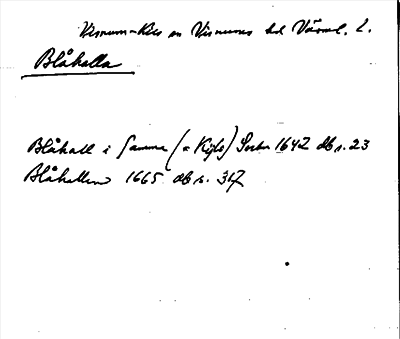 Visnum-Kils sn Visnums hd Värml. L.
Blåhalla
Blåhall i samma (= Kils) Socken 1642 db s. 23
Blåhallen 1665 db s. 317